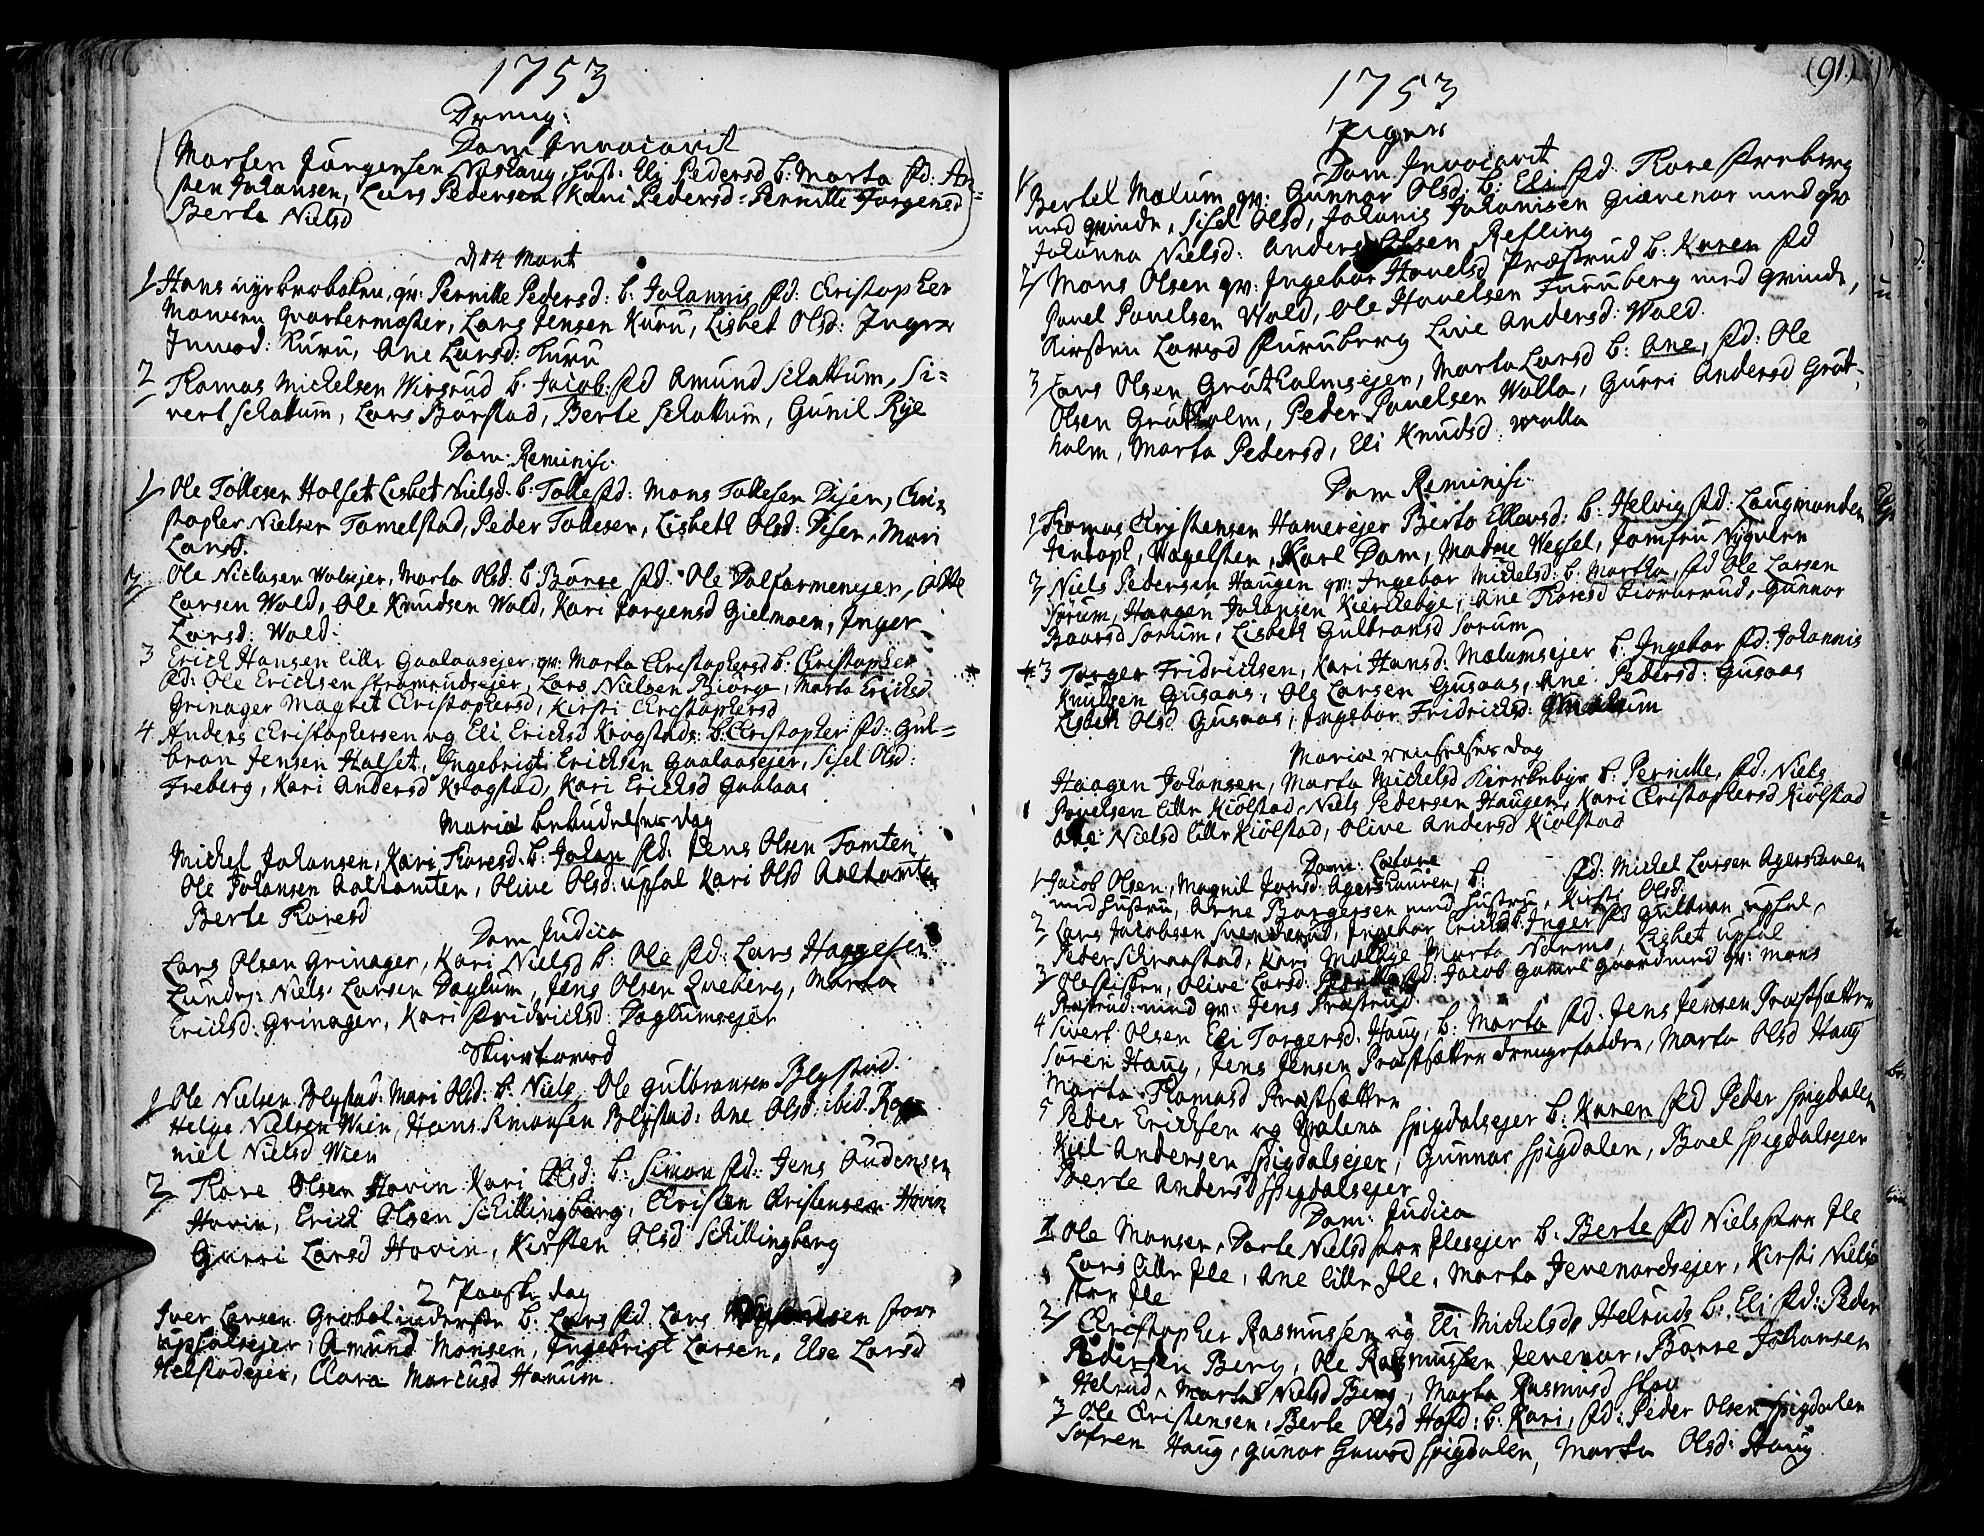 1753
Dreng:
Dom Invocavit
Morten Jørgensen Nashaug, Hust: Eli Pedersd b: Marta fd: An=
sten Johansen, Lars Pedersen, Kari Pedersd: Pernille Jorgensd
Berte Nielsd
d 14 Mart
1 Hans qv: Pernille Pedersd: b: Johannis fd: Christopher
Monsen Quartermester, Lars Jensen Kuru, Lisbet Olsd: Inger
Kuru, Ane Larsd: Kuru
2 Thomas Michelsen b. Jacob: fd Amund Schattum, Si=
vert Schattum, Lars Borstad, Berte Schattum, Gunil Rye
Dom: Reminisc.
1 Ole Tollesen Holset Lisbet Nielsd. b: Tolle fd: Mons Tollesen Disen, Chri=
stopher Nielsen Tomelstad, Peder Tollesen, Lisbeth Olsd: Disen, Mari
Larsd.
2 Ole Niclasen Wolsejer, Marta Olsd. b Børre fd. Ole
Larsen Wold, Ole Knudsen Wold, Kari Jorgensd Gielmoen, Inger
Larsd: Wold.
3 Erich Hansen lille Gaalaasejer, qv: Marta Christophersd b: Christopher
fd: Ole Erichsen Stromrudsejer, Lars Nielsen Biørge, Marta Erichsd
Grinager Magnet Christophersd, Kirsti Christophersd
4 Anders Christophersen og Eli Erichsd Krogstad: b. Christopher fd: Gul=
bran Jensen Holset, Ingebrigt Erichsen Gaalaasejer, Sisel Olsd:
Freberg, Kari Andersd Krogstad, Kari Erichsd Gaalaas
Mariæ bebudelses dag
Michel Johansen, Kari Thoresd. b: Johan fd: Jens Olsen Tomten
Ole Johansen Aaltomten, Olive Olsd: upsal Kari Olsd Aaltomten
Berte Thoresd
Dom Judica
Lars Olsen Grinager, Kari Nielsd b: Ole fd: Lars Haagesen
Lunde: Niels Larsen Doglum, Jens Olsen Queberg, Marta
Erichsd: Grinager, Kari Fridrichsd: Doglumsejer
Skiertorsd
1 Ole Nielsen Blystad: Mari Olsd: b: Niels, Ole Gulbransen Blystad.
Helge Nielsen Wien, Hans Simonsen Blystad: Ane Olsd: ibid.
niel Nielsd Wien
2 Thore Olsen Hovin Kari Olsd: b: Simon fd: Jens Audensen
Hovin, Erich Olsen Schillingberg, Christen Christensen Hovin
Gurri Larsd Hovin, Kirsten Olsd Schillingberg
2 Paaske dag
Iver Larsen b: Lars fd Lars store
upsalsejer, Amund Monsen, Ingebrigt Larsen, Else Larsd
Helstadsejer, Clara Marcusd Hamum.
(91)
1753
Piger
Dom Invocavit
1 Bertel Mælum qv: Gunnor Olsd: b: Eli fd: Thore Freberg
med Qvinde, Sisel Olsd, Johanis Johansen Giævenor med qv
Johanna Nielsd: Anders Olsen Refling
2 Mons Olsen qv: Ingebor Hovelsd Præstrud b: Karen fd
Povel Povelsen Wold, Ole Hovelsen Furuberg med Qvinde,
Kirsten Larsd Furuberg Live Andersd: Wold.
3 Lars Olsen Grøtholmsejer, Marta Larsd b: Ane, fd: Ole
Olsen Grøtholm, Peder Povelsen Wolla, Gurri Andersd Grøt-
holm, Marta Pedersd, Eli Knudsd: Wolla
Dom Reminisc.
1 Thomas Christensen Hamerejer Berte Ellevsd: b: Helvig fd: Laugmanden
Karl Dam, Madme Wessel, Jomfru
2 Niels Pedersen Haugen qv: Ingebor Michelsd: b: Martha, fd Ole Larsen
Sorum, Haagen Johansen Kierchebye, Ane Thoresd Gunnor
Baarsd Sorum, Lisbeth Gulbransd Sorum
3 Torger Fridrichsen, Kari Hansd: Mælumsejer b: Ingebor fd: Johannis
Knudsen Gusaas, Ole Larsen Gusaas, Ane Pedersd: Gusaas
Lisbeth Olsd Gusaas, Ingebor Fridrichsd:
Mariæ renselses dag
1 Haagen Johansen, Marta Michelsd Kirchebye b: Pernille, fd: Niels
Povelsen lille Kiolstad, Niels Pedersen Haugen, Kari Christophersd Kiolstad
Ane Nielsd lille Kiolstad, Olive Andersd Kiolstad
Dom: Lætare
1 Jacob Olsen, Magnil Jonsd: Agershauen, b: fd: Michel Larsen Agershauen
med hustru, Arne Borgersen med hustru, Kirsti Olsd.
2 Lars Jacobsen Ingebor Erichsd b. Inger fd Gulbran upsal,
Peder Schraastad, Kari Marta Narmo, Lisbet upsal
3 Olive Larsd: Pernille fd: Jacob Gamelgaard med qv: Mons
Præstrud: med qv: Jens Præstrud.
4 Sivert Olsen Eli Torgersd: Haug, b: Marta fd: Jens Jensen Præstsættre
Søren Haug, Jens Jensen Præstsættre Marta Olsd Haug
Marta Thomasd Præstsættre
5 Peder Erichsen og Malena Spigdalsejer b: Karen fd Peder Spigdalen
Kiel Andersen Spigdalsejer, Gunnor Spigdalen, Boel Spigdalsejer
Berte Andersd Spigdalsejer
Dom: Judica
1 Ole Monsen, Dorte Nielsd store Ilesejer b: Berte fd Niels store Ile
Lars lille Ile, Ane lille Ile, Marta Jevenordsejer, Kirsti Nielsd
store Ile
2 Christopher Rasmussen og Eli Michelsd, Helrud: b: Eli fd: Peder
Pedersen Berg, Ole Rasmussen Jevenor, Børre Johansen
Helrud, Marta Nielsd Berg, Marta Rasmusd Skou
3 Ole Christensen, Berte Olsd Hofd: b: Kari, fd: Peder Olsen Spigdalen
Sofren Haug, Gunor Spigdalen, Marta Olsd: Haug